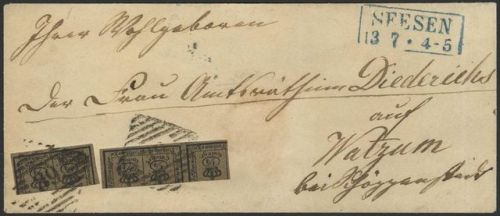 SEESEN
13 7 • 4-5
Ihrer Wohlgeboren
Der Frau Amtsräthinn Diederichs
auf
Watzum
bei Schöppenstedt